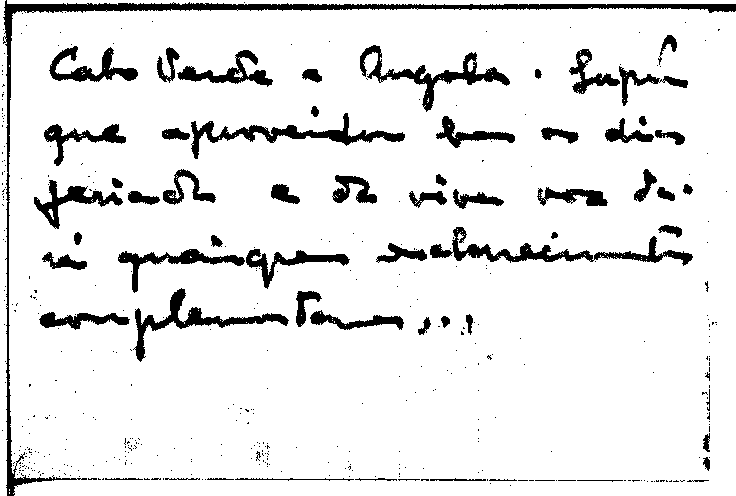 Cabo Verde e Angola. Supus
que aproveitou bem os dias
feriados e de viva voz da-
rá quaisquer esclarecimentos
complementares...